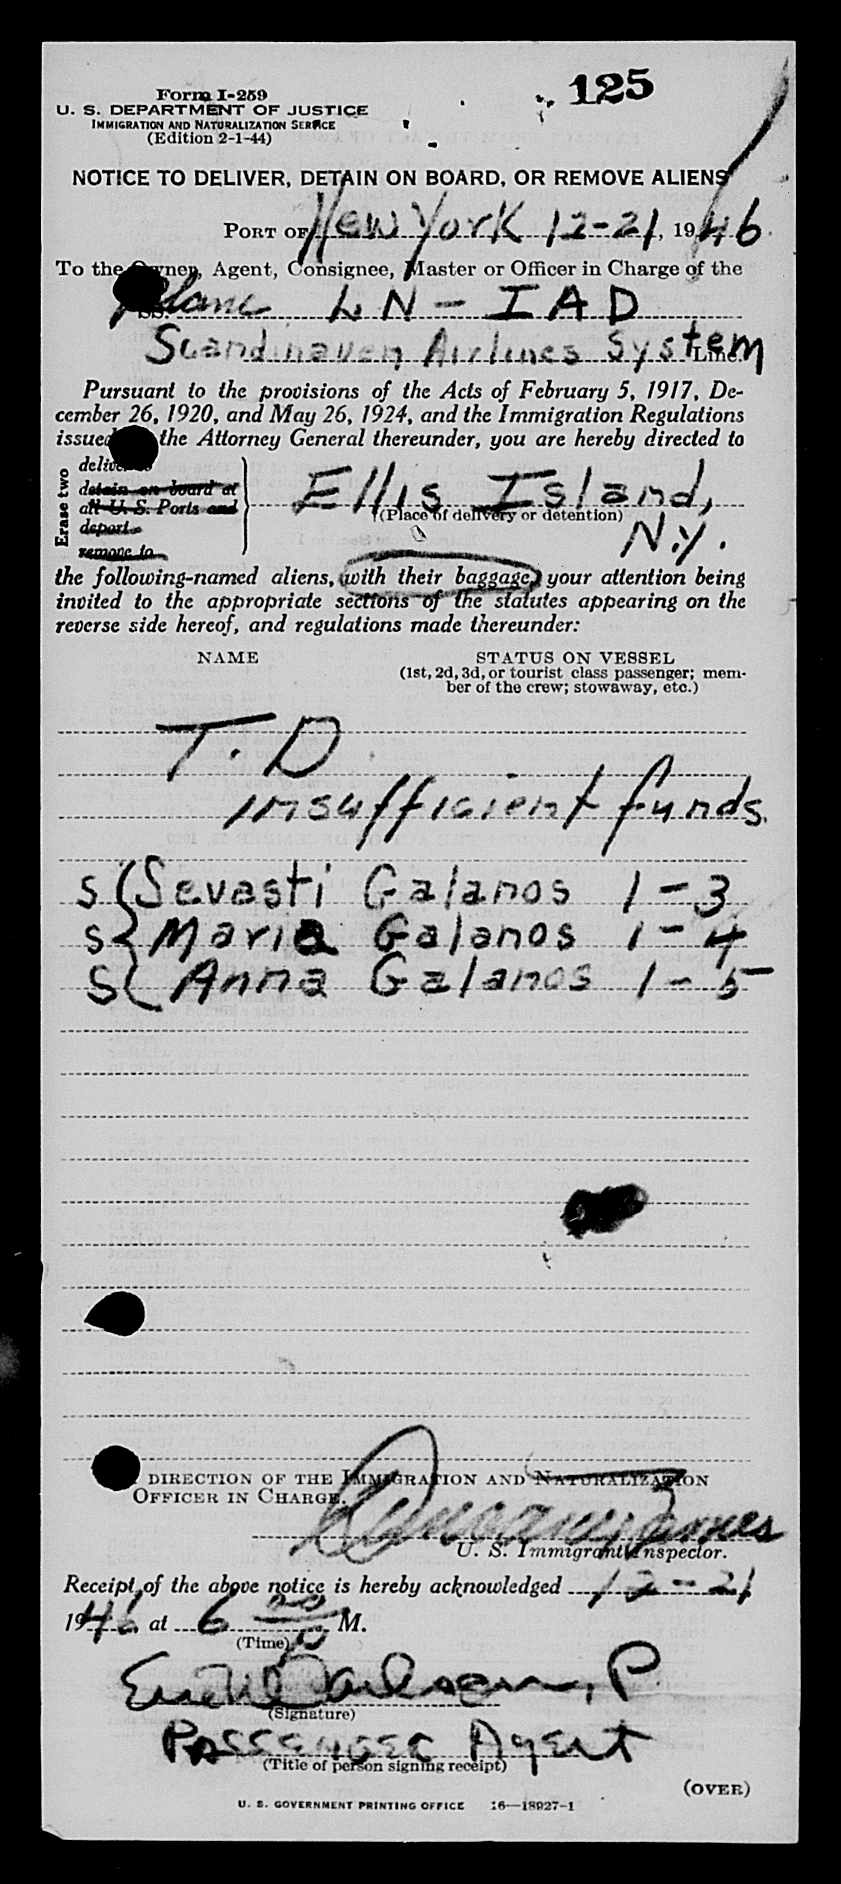 125
Form I-259
U. S. DEPARTMENT OF JUSTICE
IMMIGRATION AND NATURALIZATION SERVICE
(Edition 2-1-44)
NOTICE TO DELIVER, DETAIN ON BOARD, OR REMOVE ALIENS
PORT OF New York 12-21, 1946
To the Owner, Agent, Consignee, Master or Officer in Charge of the
SS. Plane LN-IAD
Scandinaven Airlines System Line.
Pursuant to the provisions of the Acts of February 5, 1917, De-
cember 26, 1920, and May 26, 1924, and the Immigration Regulations
issued the Attorney General thereunder, you are hereby directed to
Erase two
deliver to
detain on board at
all U. S. Ports and
deport
remove to
Ellis Island,
(Place of delivery or detention)
N.Y.
the following-named aliens, with their baggage, your attention being
invited to the appropriate sections of the statutes appearing on the
reverse side hereof, and regulations made thereunder:
NAME STATUS ON VESSEL
(1st, 2d, 3d, or tourist class passenger; mem-
ber of the crew; stowaway, etc.)
T. D
insufficient funds.
S Sevasti Galanos 1-3
S Maria Galanos 1-4
S Anna Galanos 1-5
DIRECTION OF THE IMMIGRATION AND NATURALIZATION
OFFICER IN CHARGE.
U. S. Immigrant Inspector.
Receipt of the above notice is hereby acknowledged 12-21
1946, at 6 M.
(Time)
Carlson, P.
(Signature)
Passenger Agent
(Title of person signing receipt)
(OVER)
U. S. GOVERNMENT PRINTING OFFICE 16—18927-1